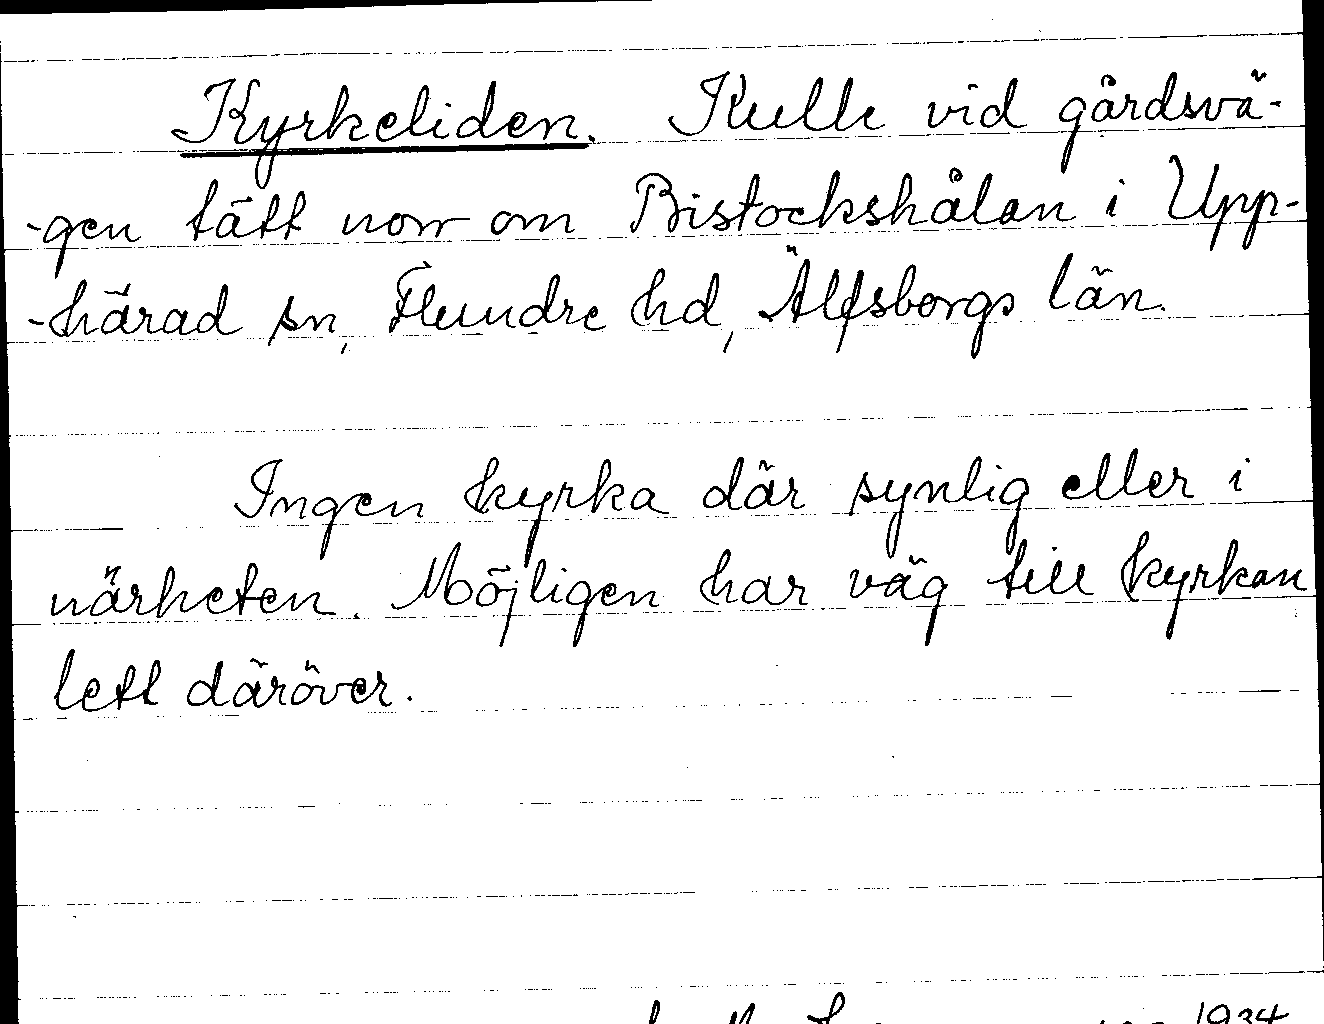 Kyrkeliden. Kulle vid gårdsvä-
-gen tätt norr om Bistockshålan i Upp-
-härad sn, Flundre hd, Älfsborgs län.
Ingen kyrka där synlig eller i
närheten. Möjligen har väg till kyrkan
lett däröver.
1934